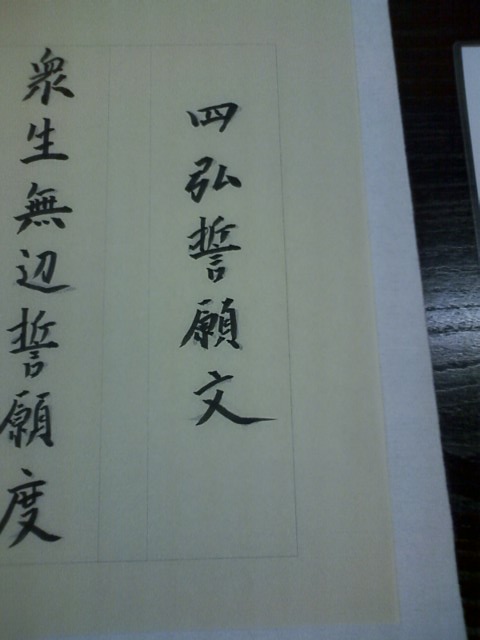 四弘誓願文
衆生無辺誓願度